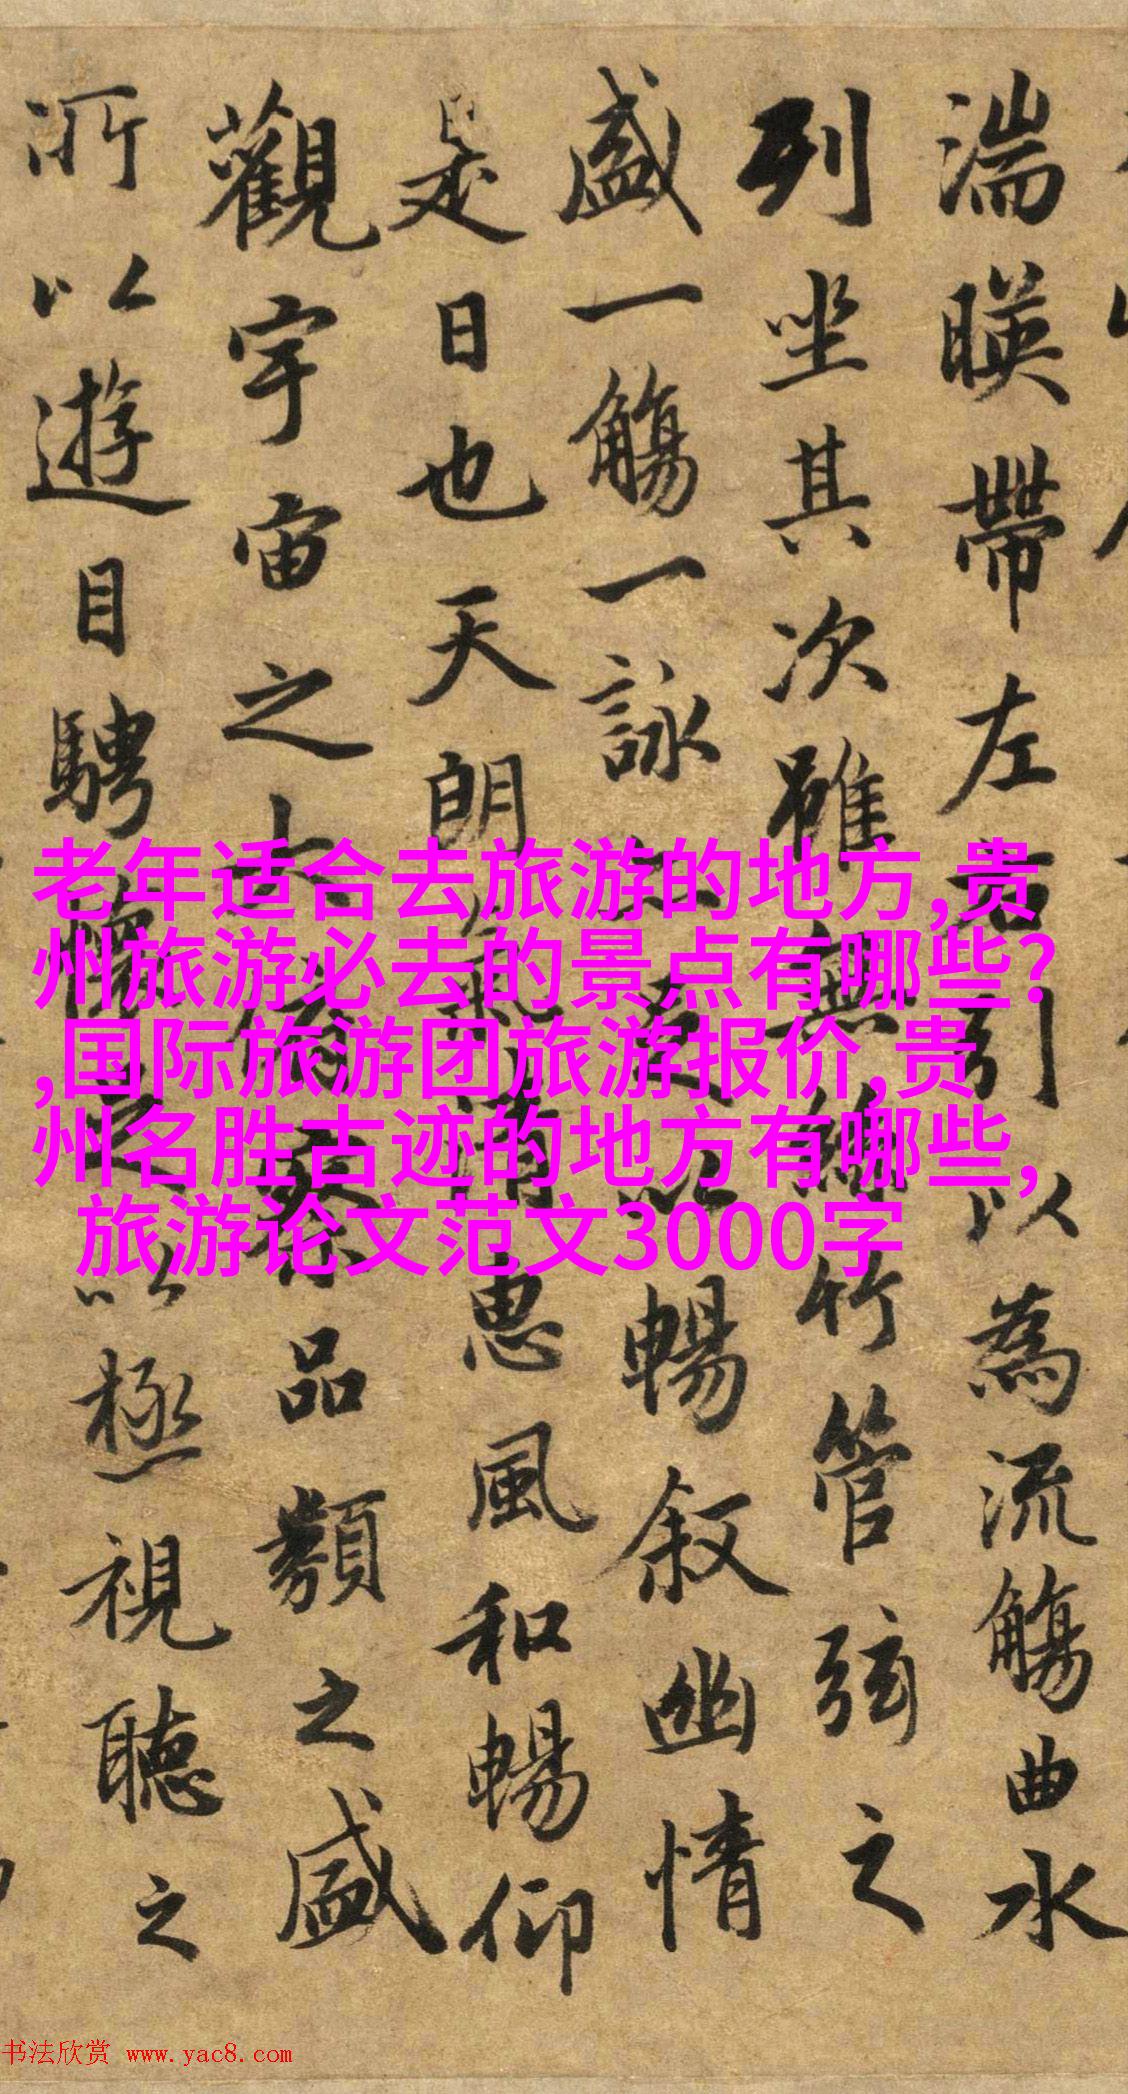 湍暎帶左右引以為流觴曲水
列坐其次雖無絲竹管弦之
盛一觴一詠亦足以暢叙幽情
是日也天朗氣清惠風和暢仰
觀宇宙之大俯察品類之盛
所以遊目騁懷足以極視聽之
老年适合去旅游的地方,贵
州旅游必去的景点有哪些?
,国际旅游团旅游报价,贵
州名胜古迹的地方有哪些,
旅游论文范文3000字
书法欣赏 www.yac8.com